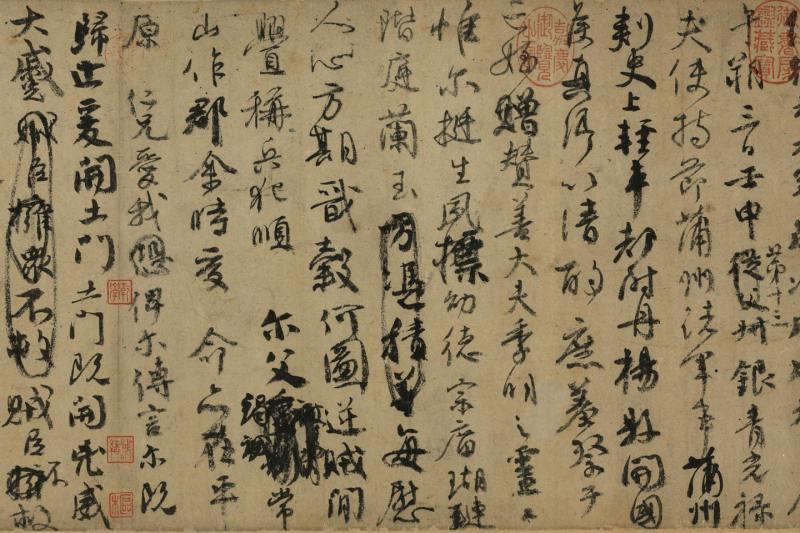 午朔三日壬申第十三從父叔銀青光祿
夫使持節蒲州諸軍事蒲州
刺史上輕車都尉丹楊縣開國
侯真卿以清酌庶羞祭于
亡姪贈贊善大夫季明之靈曰
惟爾挺生夙標幼德宗廟瑚璉
階庭蘭玉方憑積善每慰
人心方期戩穀何圖逆賊閒
釁稱兵犯順 爾父竭誠常
山作郡余時受命亦在平
原 仁兄愛我恐俾爾傳言爾既
歸止爰開土門土門既開凶威
大蹙賊臣擁眾不救賊臣不救